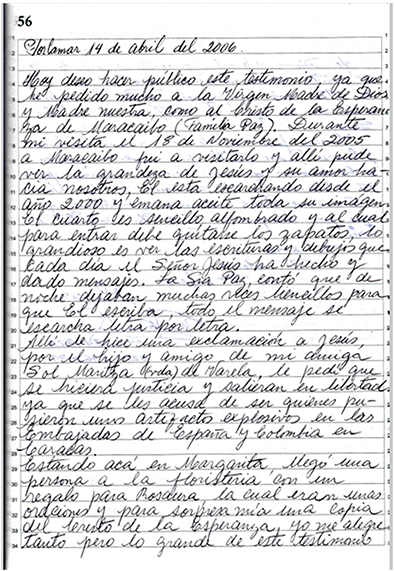 56
Porlamar 14 de abril del 2006.
Hoy deseo hacer público este testimonio, ya que
he pedido mucho a la Virgen Madre de Dios
y Madre nuestra, como al Cristo de la Esperan
za de Maracaibo (Familia Paz). Durante
mi visita el 18 de Noviembre del 2005
a Maracaibo fui a visitarlo y allí pude
ver la grandeza de Jesús y su amor ha-
cia nosotros, El esta escarchando desde el
año 2000 y emana aceite toda su imagen
El cuarto es sencillo alfombrado y al cual
para entrar debe quitarse los zapatos, lo
grandioso es ver las escrituras y dibujos que
cada día el Señor Jesús ha hecho y
dado mensajes. La Sra Paz, contó que de
noche dejaban muchas veces lienzillos para
que El escriba, todo el mensaje se
escarcha letra por letra.
Allí le hice una exclamación a Jesús,
por el hijo y amigo de mi amiga
Sol Maritza de Varela, le pedí que
se hiciera justicia y salieran en libertad
ya que se les acusa de ser quienes pu-
sieron unos artefactos explosivos en las
Embajadas de España y Colombia en
Caracas.
Estando acá en Margarita, llegó una
persona a la floristería con un
regalo para Rosaura, la cual eran unas
oraciones y para sorpresa mía una copia
del Cristo de la Esperanza, yo me alegre
tanto pero lo grande de este testimonio